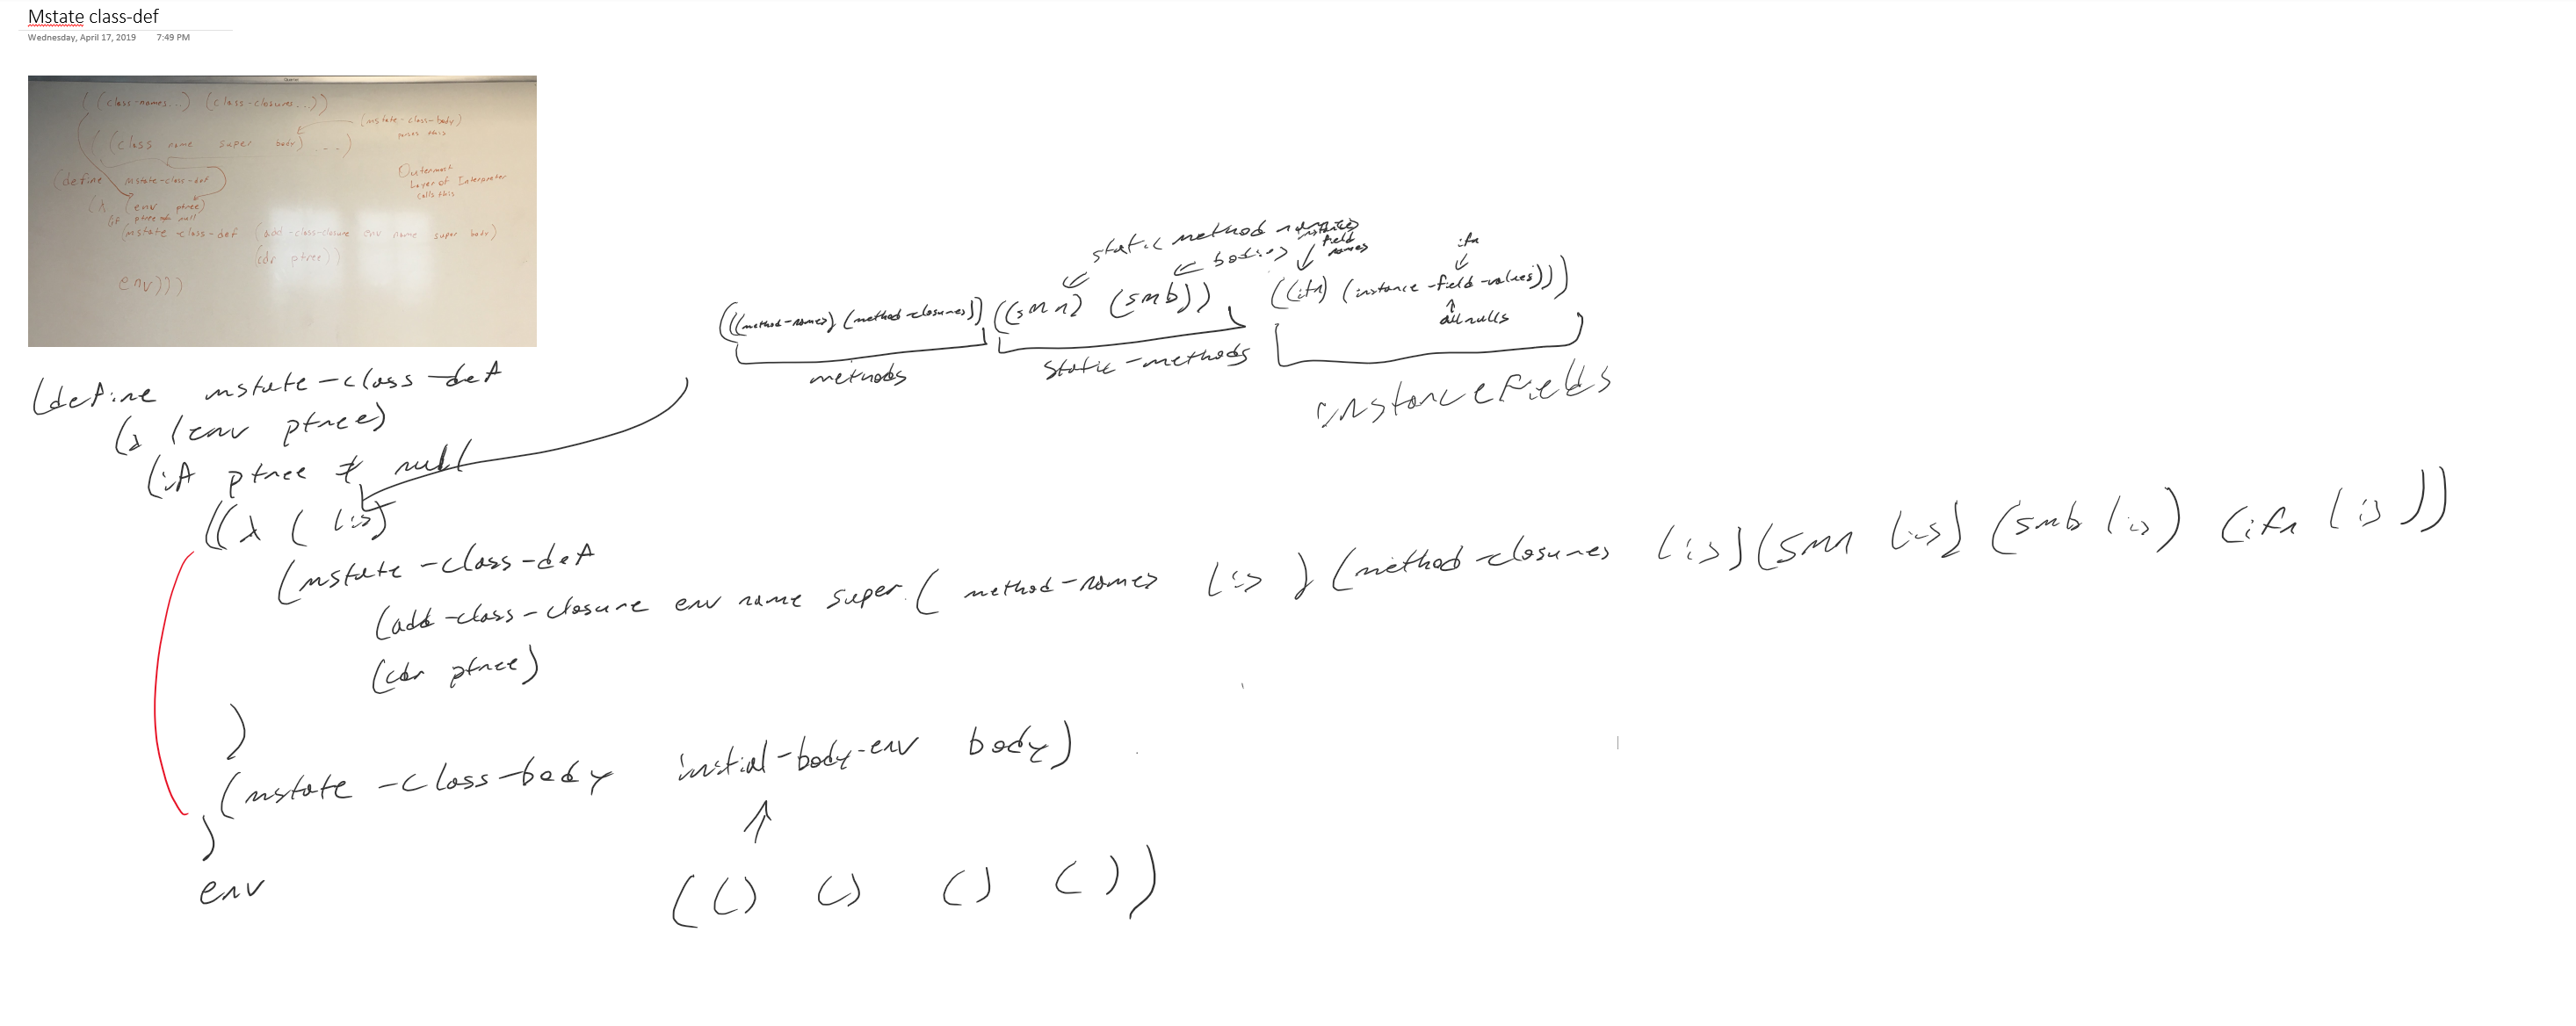 Mstate class-def
Wednesday, April 17, 2019 7:49 PM
((class-names...) (class-closures...))
(mstate-class-body)
parses this
((class name super body) ...)
Outermost
Layer of Interpreter
calls this
(define mstate-class-def
(λ (env ptree)
(if ptree ≠ null
(mstate-class-def (add-class-closure env name super body)
(cdr ptree))
env)))
static method names
bodies
instance
field
names
ifn
(((method-names) (method-closures)) ((smn) (smb)) ((ifn) (instance-field-values)))
all nulls
methods
static-methods
instance fields
(define mstate-class-def
(λ (env ptree)
(if ptree ≠ null
((λ (lis)
(mstate-class-def
(add-class-closure env name super (method-names lis) (method-closures lis) (smn lis) (smb lis) (ifn lis))
(cdr ptree)
)
(mstate-class-body initial-body-env body)
)
env
(() () () ())